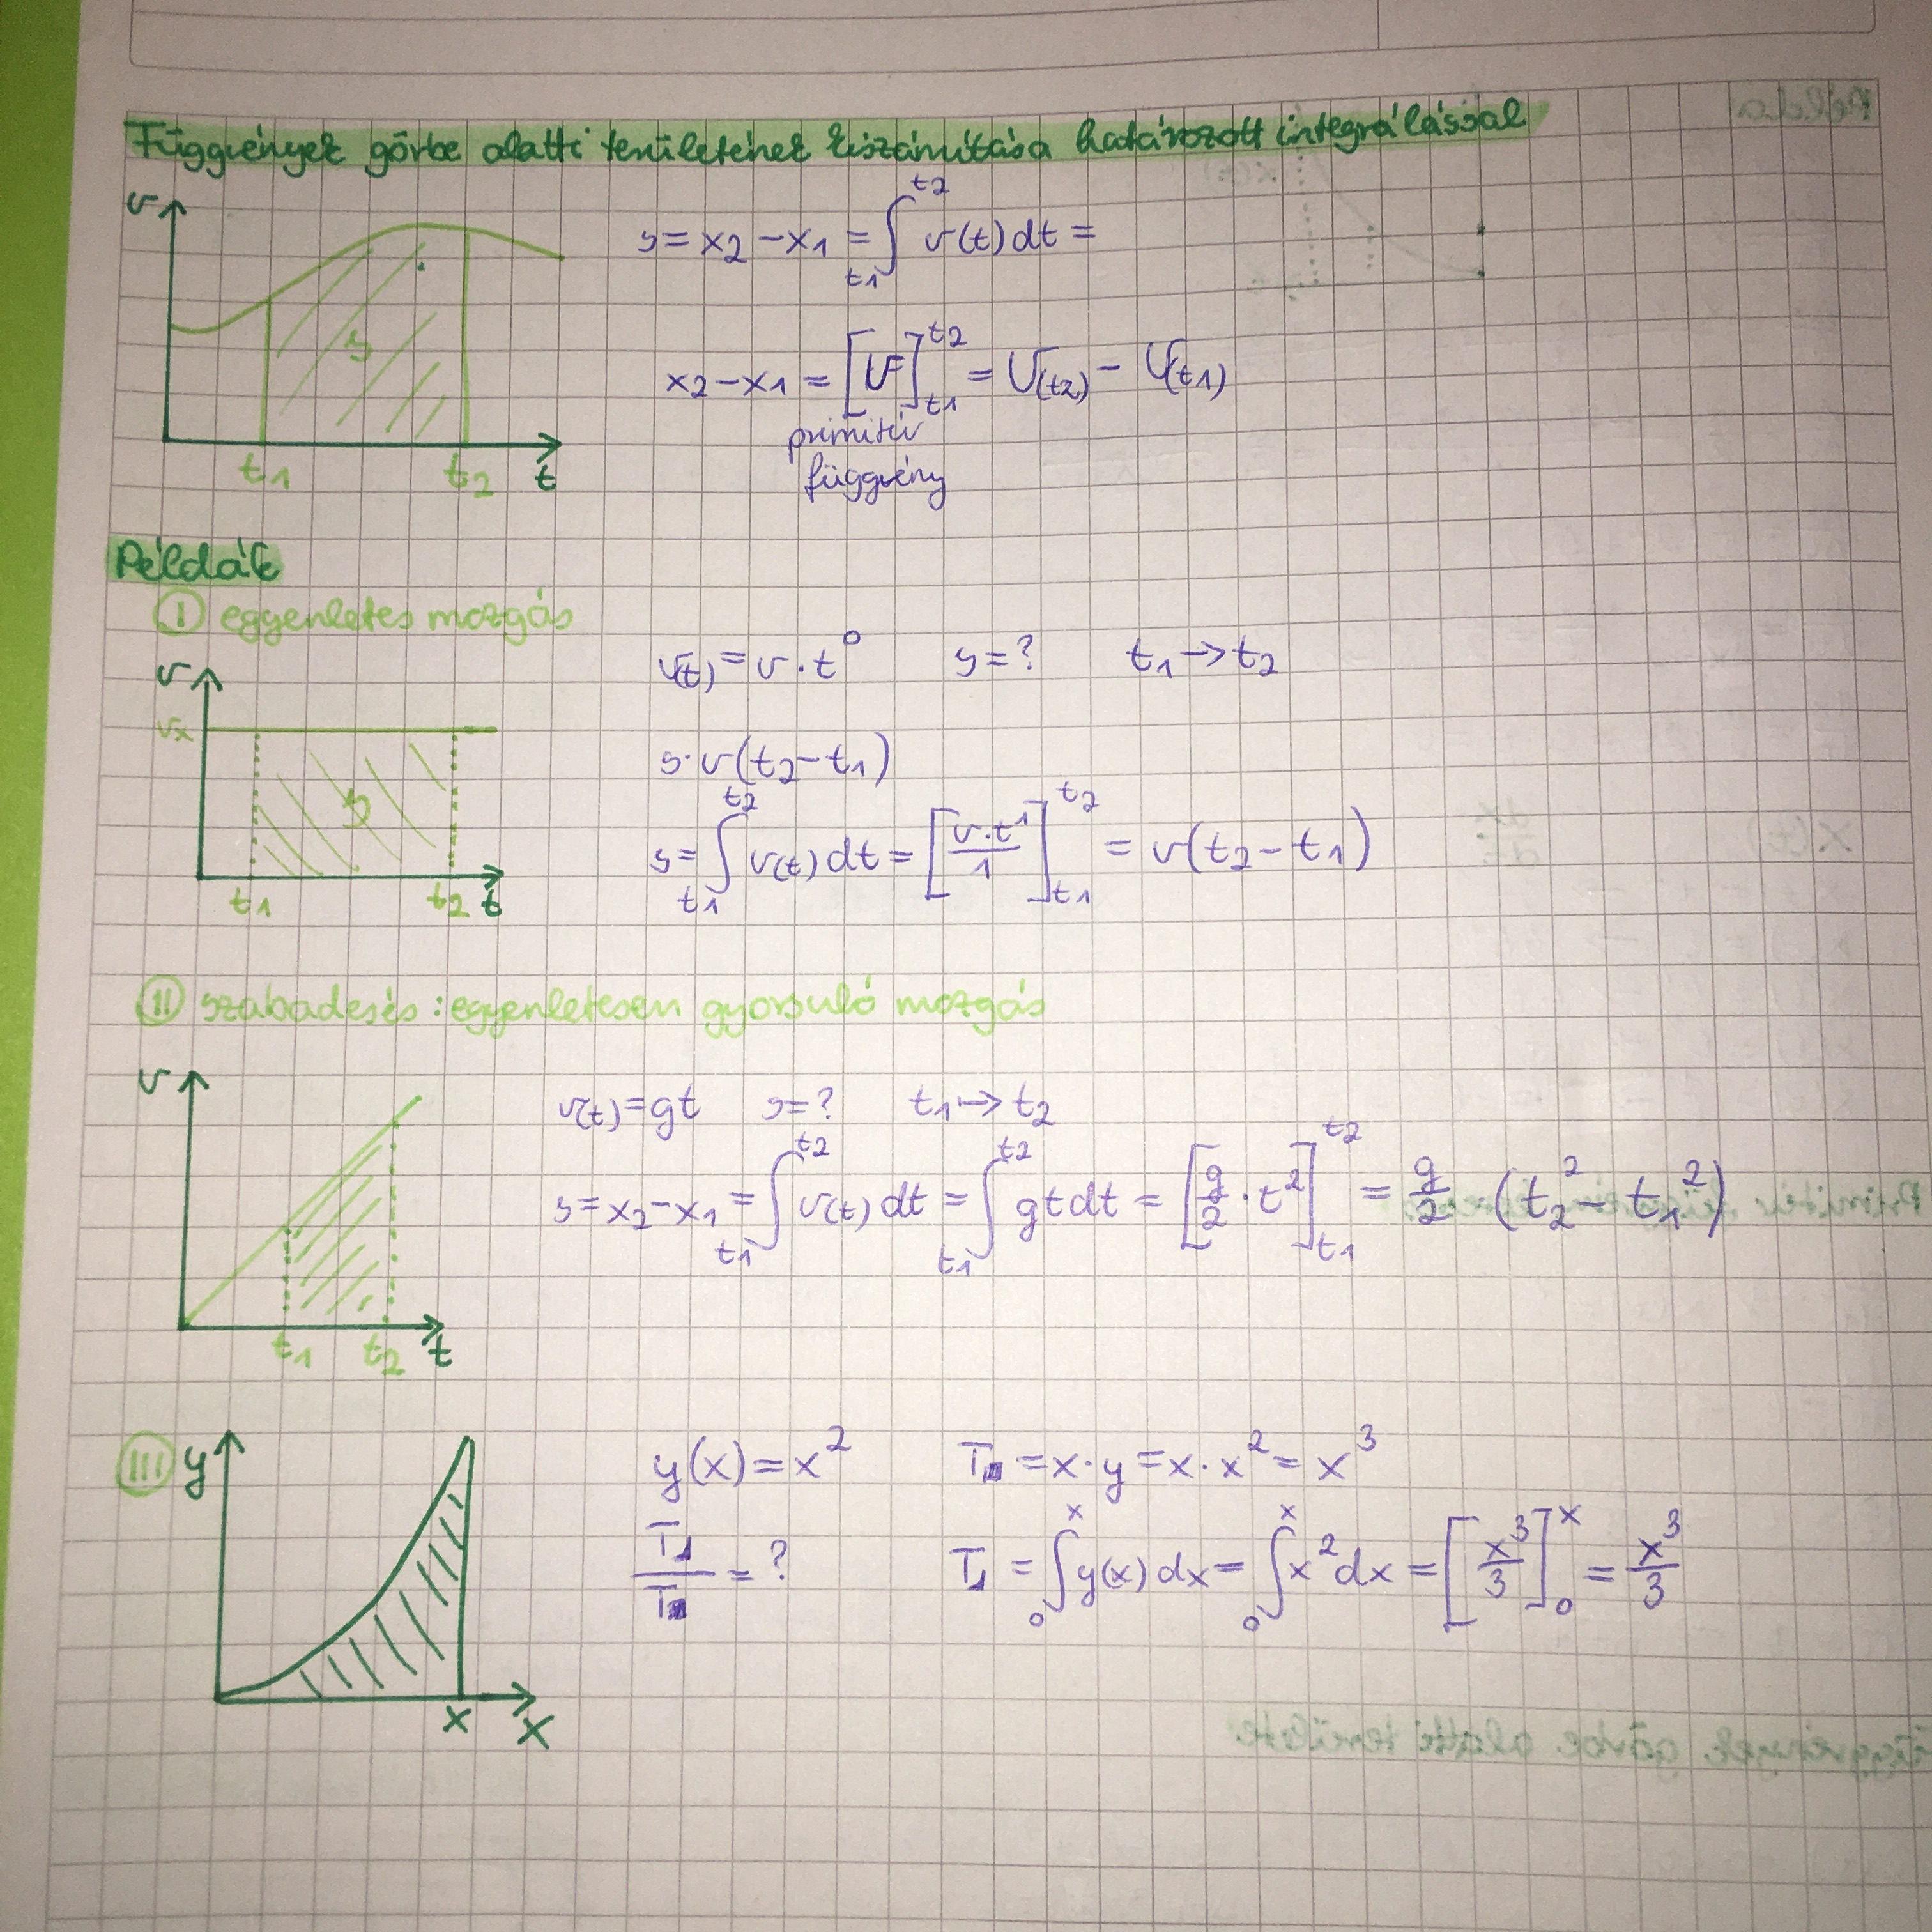 Függvények görbe alatti területének kiszámítása határozott integrálással
v
s
t1 t2 t
s = x2 − x1 = ∫_{t1}^{t2} v(t) dt =
x2 − x1 = [V]_{t1}^{t2} = V(t2) − V(t1)
primitív
függvény
Példák
I egyenletes mozgás
v
vx
s
t1 t2 t
v(t) = v · t^0 s = ? t1 → t2
s · v(t2 − t1)
s = ∫_{t1}^{t2} v(t) dt = [v·t^1/1]_{t1}^{t2} = v(t2 − t1)
II szabadesés : egyenletesen gyorsuló mozgás
v
t1 t2 t
v(t) = gt s = ? t1 → t2
s = x2 − x1 = ∫_{t1}^{t2} v(t) dt = ∫_{t1}^{t2} gt dt = [g/2 · t^2]_{t1}^{t2} = g/2 (t2^2 − t1^2)
III y
x x
y(x) = x^2 T■ = x · y = x · x^2 = x^3
T◢/T■ = ? T◢ = ∫_0^x y(x) dx = ∫_0^x x^2 dx = [x^3/3]_0^x = x^3/3